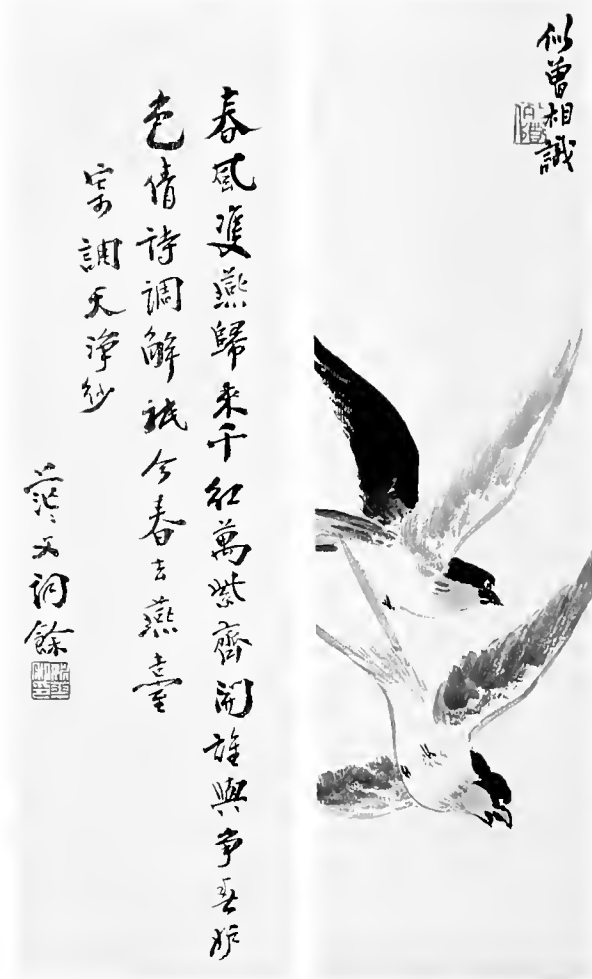 似曾相識
春風雙燕歸來千紅萬紫齊開誰與爭妒
色倩詩調解祇今春去燕臺
寄調天淨紗
茫〻父詞餘